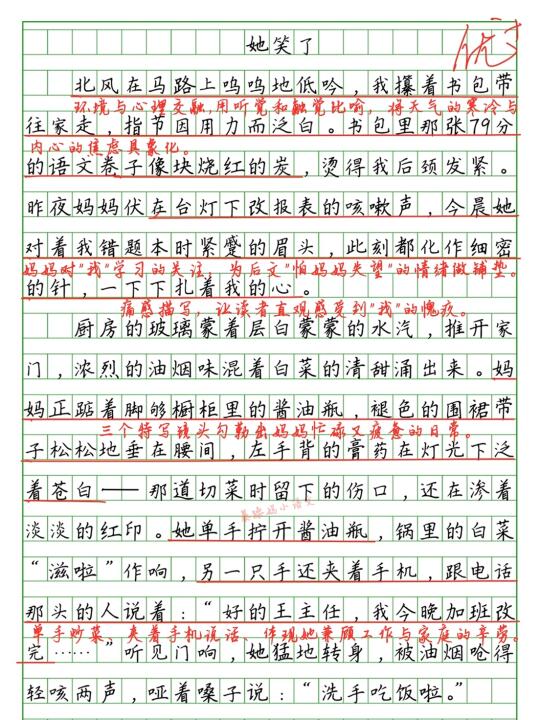 她笑了
优
北风在马路上呜呜地低吟，我攥着书包带
环境与心理交融，用听觉和触觉比喻，将天气的寒冷与
往家走，指节因用力而泛白。书包里那张79分
内心的焦虑具象化。
的语文卷子像块烧红的炭，烫得我后颈发紧。
昨夜妈妈伏在台灯下改报表的咳嗽声，今晨她
对着我错题本时紧蹙的眉头，此刻都化作细密
妈妈对“我”学习的关注，为后文“怕妈妈失望”的情绪做铺垫。
的针，一下下扎着我的心。
痛感描写，让读者直观感受到“我”的愧疚。
厨房的玻璃蒙着层白蒙蒙的水汽，推开家
门，浓烈的油烟味混着白菜的清甜涌出来。妈
妈正踮着脚够橱柜里的酱油瓶，褪色的围裙带
三个特写镜头勾勒出妈妈忙碌又疲惫的日常。
子松松地垂在腰间，左手背的膏药在灯光下泛
着苍白——那道切菜时留下的伤口，还在渗着
淡淡的红印。她单手拧开酱油瓶，锅里的白菜
“滋啦”作响，另一只手还夹着手机，跟电话
那头的人说着：“好的王主任，我今晚加班改
单手炒菜”夹着手机说话、体现她兼顾工作与家庭的辛劳。
完……”听见门响，她猛地转身，被油烟呛得
轻咳两声，哑着嗓子说：“洗手吃饭啦。”